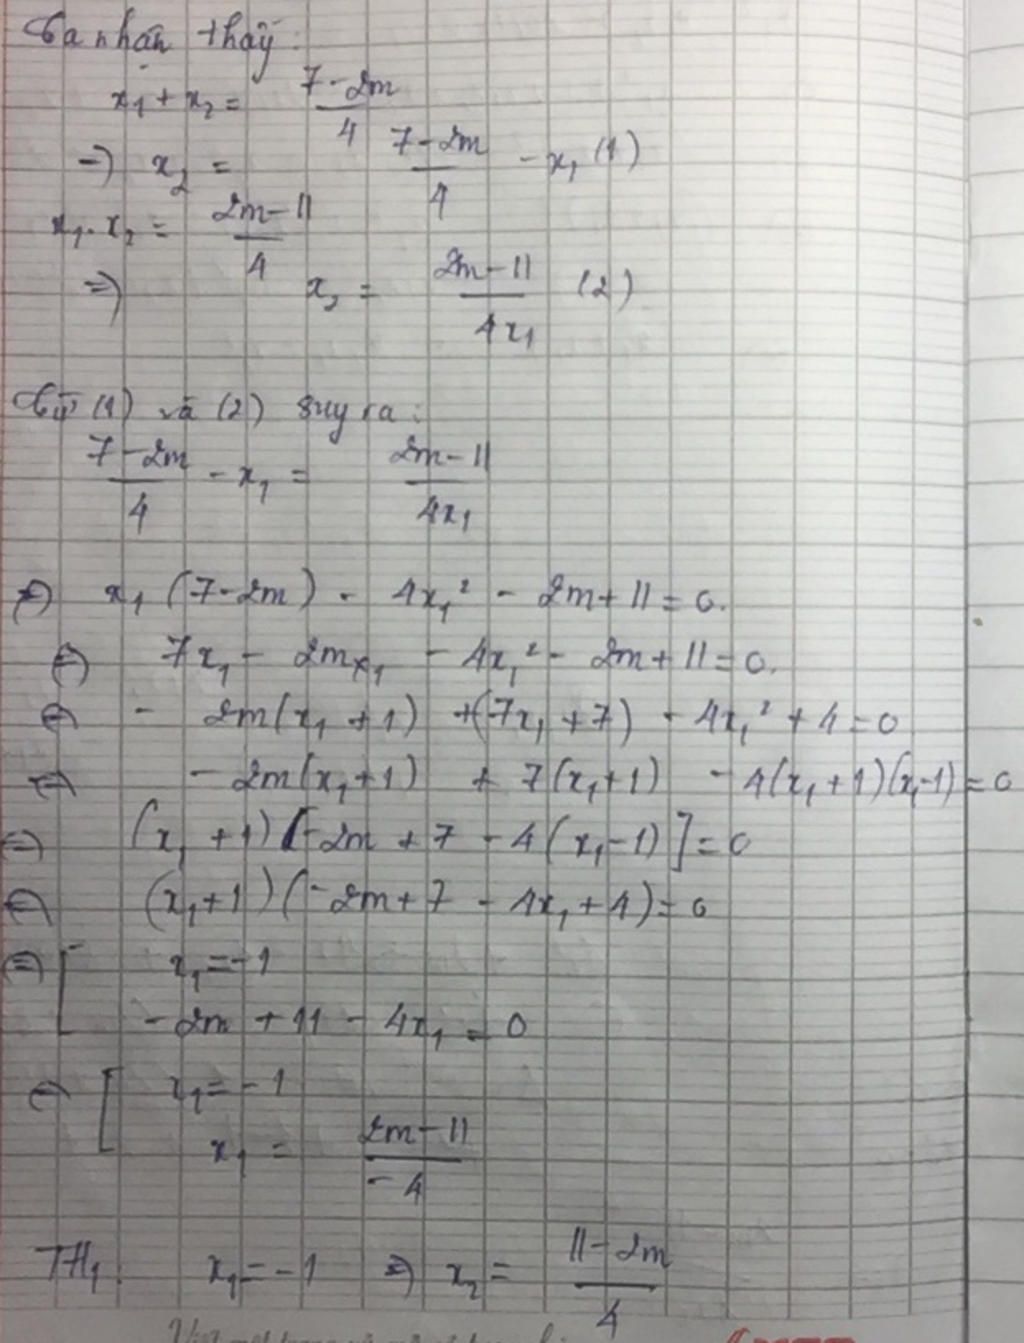 Ta nhận thấy:
x₁ + x₂ = (7-2m)/4
=) x₂ = (7-2m)/4 - x₁ (1)
x₁. x₂ = (2m-11)/4
=) x₂ = (2m-11)/(4x₁) (2)
Từ (1) và (2) suy ra:
(7-2m)/4 - x₁ = (2m-11)/(4x₁)
(=) x₁ (7-2m) - 4x₁² - 2m+11=0.
(=) 7x₁ - 2mx₁ - 4x₁² - 2m+11=0.
(=) - 2m(x₁ +1) +(7x₁ +7) - 4x₁² + 4=0
(=) - 2m(x₁+1) + 7(x₁+1) - 4(x₁+1)(x₁-1)=0
(=) (x₁ +1) [-2m + 7 - 4(x₁-1)]=0
(=) (x₁+1)(-2m+7 - 4x₁+4)=0
(=) [ x₁=-1
-2m + 11 - 4x₁ = 0
(=) [ x₁=-1
x₁ = (2m-11)/(-4)
TH₁. x₁=-1 =) x₂= (11-2m)/4